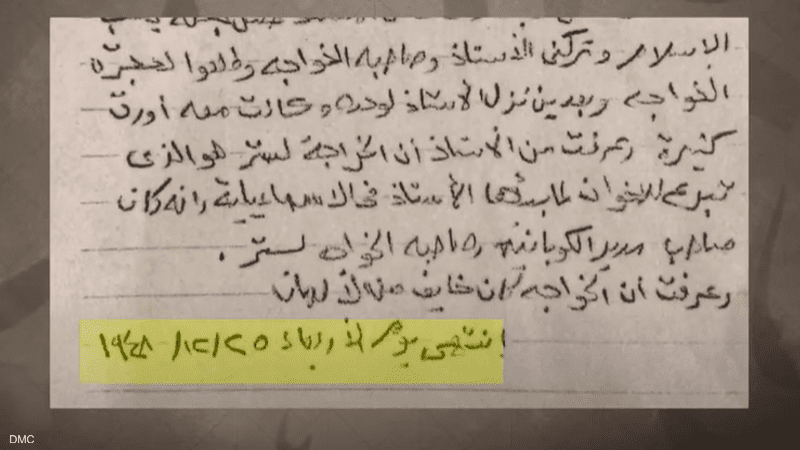 الإسلام وتركنى الأستاذ وصاحبه الخواجه وطلعوا لحجرة
الخواجه وبعدين نزل الأستاذ لوحده وكانت معه أورق
كثيرة وعرفت من الأستاذ أن الخواجة لستر هو الذى
تبرع للاخوان لما بدأها الأستاذ فى الاسماعيلية وانه كان
صاحب مدير الكوبانيه وصاحبه الخواجه لستر.
وعرفت أن الخواجه كان خايف من الألمان
انتهى يوم الأربعاء ٢٥/١٢/١٩٤٨
DMC